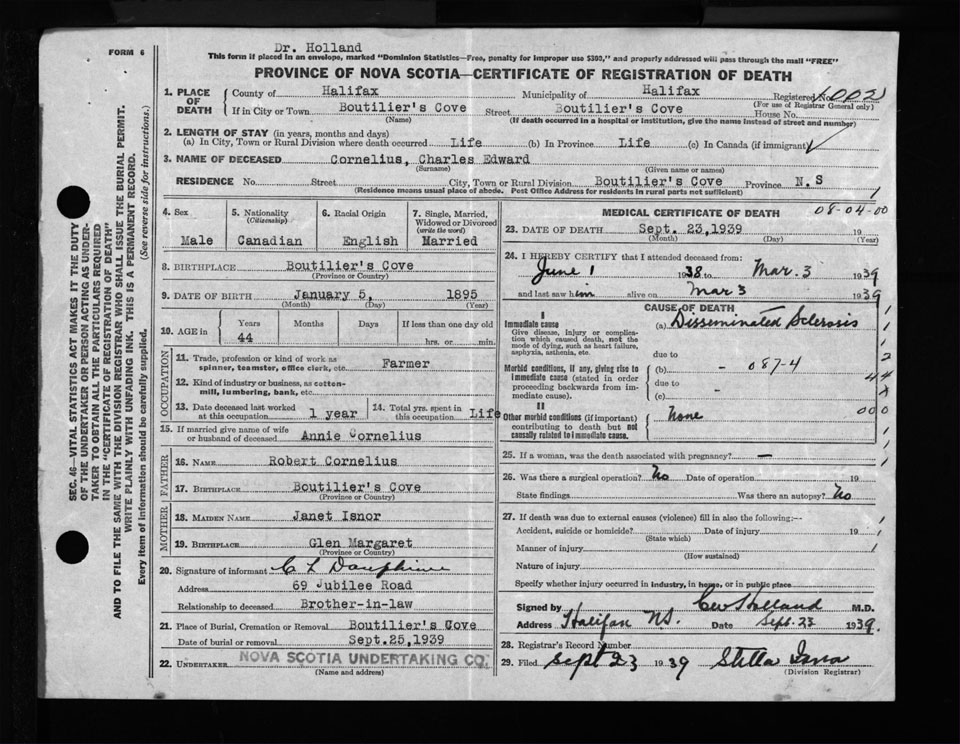 FORM 6
Dr. Holland
This form if placed in an envelope, marked "Dominion Statistics—Free, penalty for improper use $300," and properly addressed will pass through the mail "FREE"
PROVINCE OF NOVA SCOTIA—CERTIFICATE OF REGISTRATION OF DEATH
1. PLACE OF DEATH County of Halifax Municipality of Halifax Registered No. 6002
(For use of Registrar General only)
If in City or Town Boutilier's Cove Street Boutilier's Cove House No.
(Name) (If death occurred in a hospital or institution, give the name instead of street and number)
2. LENGTH OF STAY (in years, months and days)
(a) In City, Town or Rural Division where death occurred Life (b) In Province Life (c) In Canada (if immigrant)
3. NAME OF DECEASED Cornelius, Charles Edward
(Surname) (Given name or names)
RESIDENCE No. Street City, Town or Rural Division Boutilier's Cove Province N.S
(Residence means usual place of abode. Post Office Address for residents in rural parts not sufficient)
4. Sex Male
5. Nationality (Citizenship) Canadian
6. Racial Origin English
7. Single, Married, Widowed or Divorced (write the word) Married
8. BIRTHPLACE Boutilier's Cove
(Province or Country)
9. DATE OF BIRTH January 5, 1895
(Month) (Day) (Year)
10. AGE in Years Months Days If less than one day old
44 hrs. or min.
OCCUPATION
11. Trade, profession or kind of work as spinner, teamster, office clerk, etc. Farmer
12. Kind of industry or business, as cotton-mill, lumbering, bank, etc.
13. Date deceased last worked at this occupation 1 year
14. Total yrs. spent in this occupation Life
15. If married give name of wife or husband of deceased Annie Cornelius
FATHER
16. NAME Robert Cornelius
17. BIRTHPLACE Boutilier's Cove
(Province or Country)
MOTHER
18. MAIDEN NAME Janet Isnor
19. BIRTHPLACE Glen Margaret
(Province or Country)
20. Signature of informant C L Dauphinee
Address 69 Jubilee Road
Relationship to deceased Brother-in-law
21. Place of Burial, Cremation or Removal Boutilier's Cove
Date of burial or removal Sept.25,1939
22. UNDERTAKER NOVA SCOTIA UNDERTAKING CO.
(Name and address)
MEDICAL CERTIFICATE OF DEATH 08-04-00
23. DATE OF DEATH Sept. 23,1939 19
(Month) (Day) (Year)
24. I HEREBY CERTIFY that I attended deceased from:
June 1 1938 to Mar. 3 1939
and last saw him alive on Mar 3 1939
CAUSE OF DEATH
I
Immediate cause (a) Disseminated Sclerosis
Give disease, injury or complication which caused death, not the mode of dying, such as heart failure, asphyxia, asthenia, etc.
due to
Morbid conditions, if any, giving rise to immediate cause (stated in order proceeding backwards from immediate cause).
(b) - 087-4
due to
(c)
II
Other morbid conditions (if important) contributing to death but not causally related to immediate cause. None
44
000
25. If a woman, was the death associated with pregnancy? —
26. Was there a surgical operation? No Date of operation 19
State findings Was there an autopsy? No
27. If death was due to external causes (violence) fill in also the following:—
Accident, suicide or homicide? Date of injury 19
(State which)
Manner of injury
(How sustained)
Nature of injury
Specify whether injury occurred in industry, in home, or in public place
Signed by Holland M.D.
Address Halifax NS. Date Sept. 23 1939.
28. Registrar's Record Number
29. Filed Sept 23 1939 Stella Isnor
(Division Registrar)
SEC. 46—VITAL STATISTICS ACT MAKES IT THE DUTY
OF THE UNDERTAKER OR PERSON ACTING AS UNDER-
TAKER TO OBTAIN ALL THE PARTICULARS REQUIRED
IN THE "CERTIFICATE OF REGISTRATION OF DEATH"
AND TO FILE THE SAME WITH THE DIVISION REGISTRAR WHO SHALL ISSUE THE BURIAL PERMIT.
WRITE PLAINLY WITH UNFADING INK. THIS IS A PERMANENT RECORD.
Every item of information should be carefully supplied. (See reverse side for instructions.)